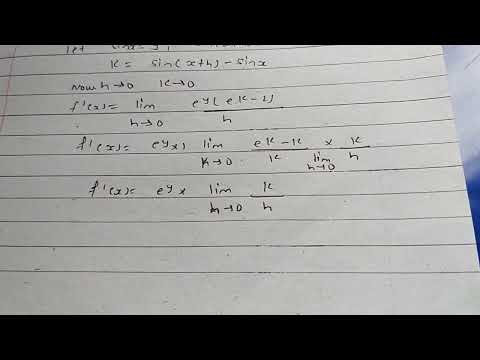 let sinx = y,
K = sin(x+h) - sinx
now h→0 K→0
f'(x) = lim h→0 e^y(e^K-1) / h
f'(x) = e^y x) lim K→0 e^K-K / K x lim h→0 K / h
f'(x) = e^y x lim h→0 K / h